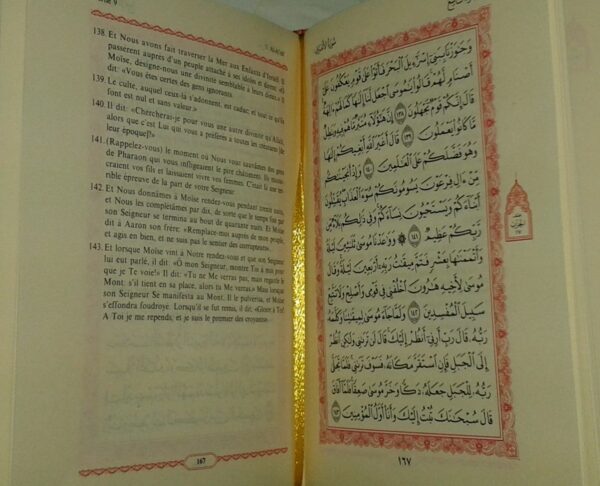 138. Et Nous avons fait traverser la Mer aux Enfants d'Israël. Il
passèrent auprès d'un peuple attaché à ses idoles et dirent: «Ô
Moïse, désigne-nous une divinité semblable à leurs dieux.» Il
dit: «Vous êtes certes des gens ignorants.
139. Le culte, auquel ceux-là s'adonnent, est caduc; et tout ce qu'ils
font est nul et sans valeur.»
140. Il dit: «Chercherai-je pour vous une autre divinité qu'Allah,
alors que c'est Lui qui vous a préférés à toutes les créatures [de
leur époque]?»
141. (Rappelez-vous) le moment où Nous vous sauvâmes des gens
de Pharaon qui vous infligeaient le pire châtiment. Ils massa-
craient vos fils et laissaient vivre vos femmes. C'était là une ter-
rible épreuve de la part de votre Seigneur.
142. Et Nous donnâmes à Moïse rendez-vous pendant trente nuits,
et Nous les complétâmes par dix, de sorte que le temps fixé par
son Seigneur se termina au bout de quarante nuits. Et Moïse
dit à Aaron son frère: «Remplace-moi auprès de mon peuple,
et agis en bien, et ne suis pas le sentier des corrupteurs».
143. Et lorsque Moïse vint à Notre rendez-vous et que son Seigneur
lui eut parlé, il dit: «Ô mon Seigneur, montre Toi à moi pour
que je Te voie!» Il dit: «Tu ne Me verras pas; mais regarde le
Mont: s'il tient en sa place, alors tu Me verras.» Mais lorsque
son Seigneur Se manifesta au Mont, Il le pulvérisa, et Moïse
s'effondra foudroyé. Lorsqu'il se fut remis, il dit: «Gloire à Toi!
A Toi je me repends; et je suis le premier des croyants».
167
وَجَٰوَزْنَا بِبَنِىٓ إِسْرَٰٓءِيلَ ٱلْبَحْرَ فَأَتَوْا۟ عَلَىٰ قَوْمٍ يَعْكُفُونَ عَلَىٰٓ
أَصْنَامٍ لَّهُمْ قَالُوا۟ يَٰمُوسَى ٱجْعَل لَّنَآ إِلَٰهًا كَمَا لَهُمْ ءَالِهَةٌ
قَالَ إِنَّكُمْ قَوْمٌ تَجْهَلُونَ ١٣٨ إِنَّ هَٰٓؤُلَآءِ مُتَبَّرٌ مَّا هُمْ فِيهِ وَبَٰطِلٌ
مَّا كَانُوا۟ يَعْمَلُونَ ١٣٩ قَالَ أَغَيْرَ ٱللَّهِ أَبْغِيكُمْ إِلَٰهًا
وَهُوَ فَضَّلَكُمْ عَلَى ٱلْعَٰلَمِينَ ١٤٠ وَإِذْ أَنجَيْنَٰكُم
مِّنْ ءَالِ فِرْعَوْنَ يَسُومُونَكُمْ سُوٓءَ ٱلْعَذَابِ يُقَتِّلُونَ
أَبْنَآءَكُمْ وَيَسْتَحْيُونَ نِسَآءَكُمْ وَفِى ذَٰلِكُم بَلَآءٌ مِّن
رَّبِّكُمْ عَظِيمٌ ١٤١ وَوَٰعَدْنَا مُوسَىٰ ثَلَٰثِينَ لَيْلَةً
وَأَتْمَمْنَٰهَا بِعَشْرٍ فَتَمَّ مِيقَٰتُ رَبِّهِۦٓ أَرْبَعِينَ لَيْلَةً وَقَالَ
مُوسَىٰ لِأَخِيهِ هَٰرُونَ ٱخْلُفْنِى فِى قَوْمِى وَأَصْلِحْ وَلَا تَتَّبِعْ
سَبِيلَ ٱلْمُفْسِدِينَ ١٤٢ وَلَمَّا جَآءَ مُوسَىٰ لِمِيقَٰتِنَا وَكَلَّمَهُۥ
رَبُّهُۥ قَالَ رَبِّ أَرِنِىٓ أَنظُرْ إِلَيْكَ قَالَ لَن تَرَىٰنِى وَلَٰكِنِ ٱنظُرْ
إِلَى ٱلْجَبَلِ فَإِنِ ٱسْتَقَرَّ مَكَانَهُۥ فَسَوْفَ تَرَىٰنِى فَلَمَّا تَجَلَّىٰ
رَبُّهُۥ لِلْجَبَلِ جَعَلَهُۥ دَكًّا وَخَرَّ مُوسَىٰ صَعِقًا فَلَمَّآ أَفَاقَ
قَالَ سُبْحَٰنَكَ تُبْتُ إِلَيْكَ وَأَنَا۠ أَوَّلُ ٱلْمُؤْمِنِينَ ١٤٣
١٦٧